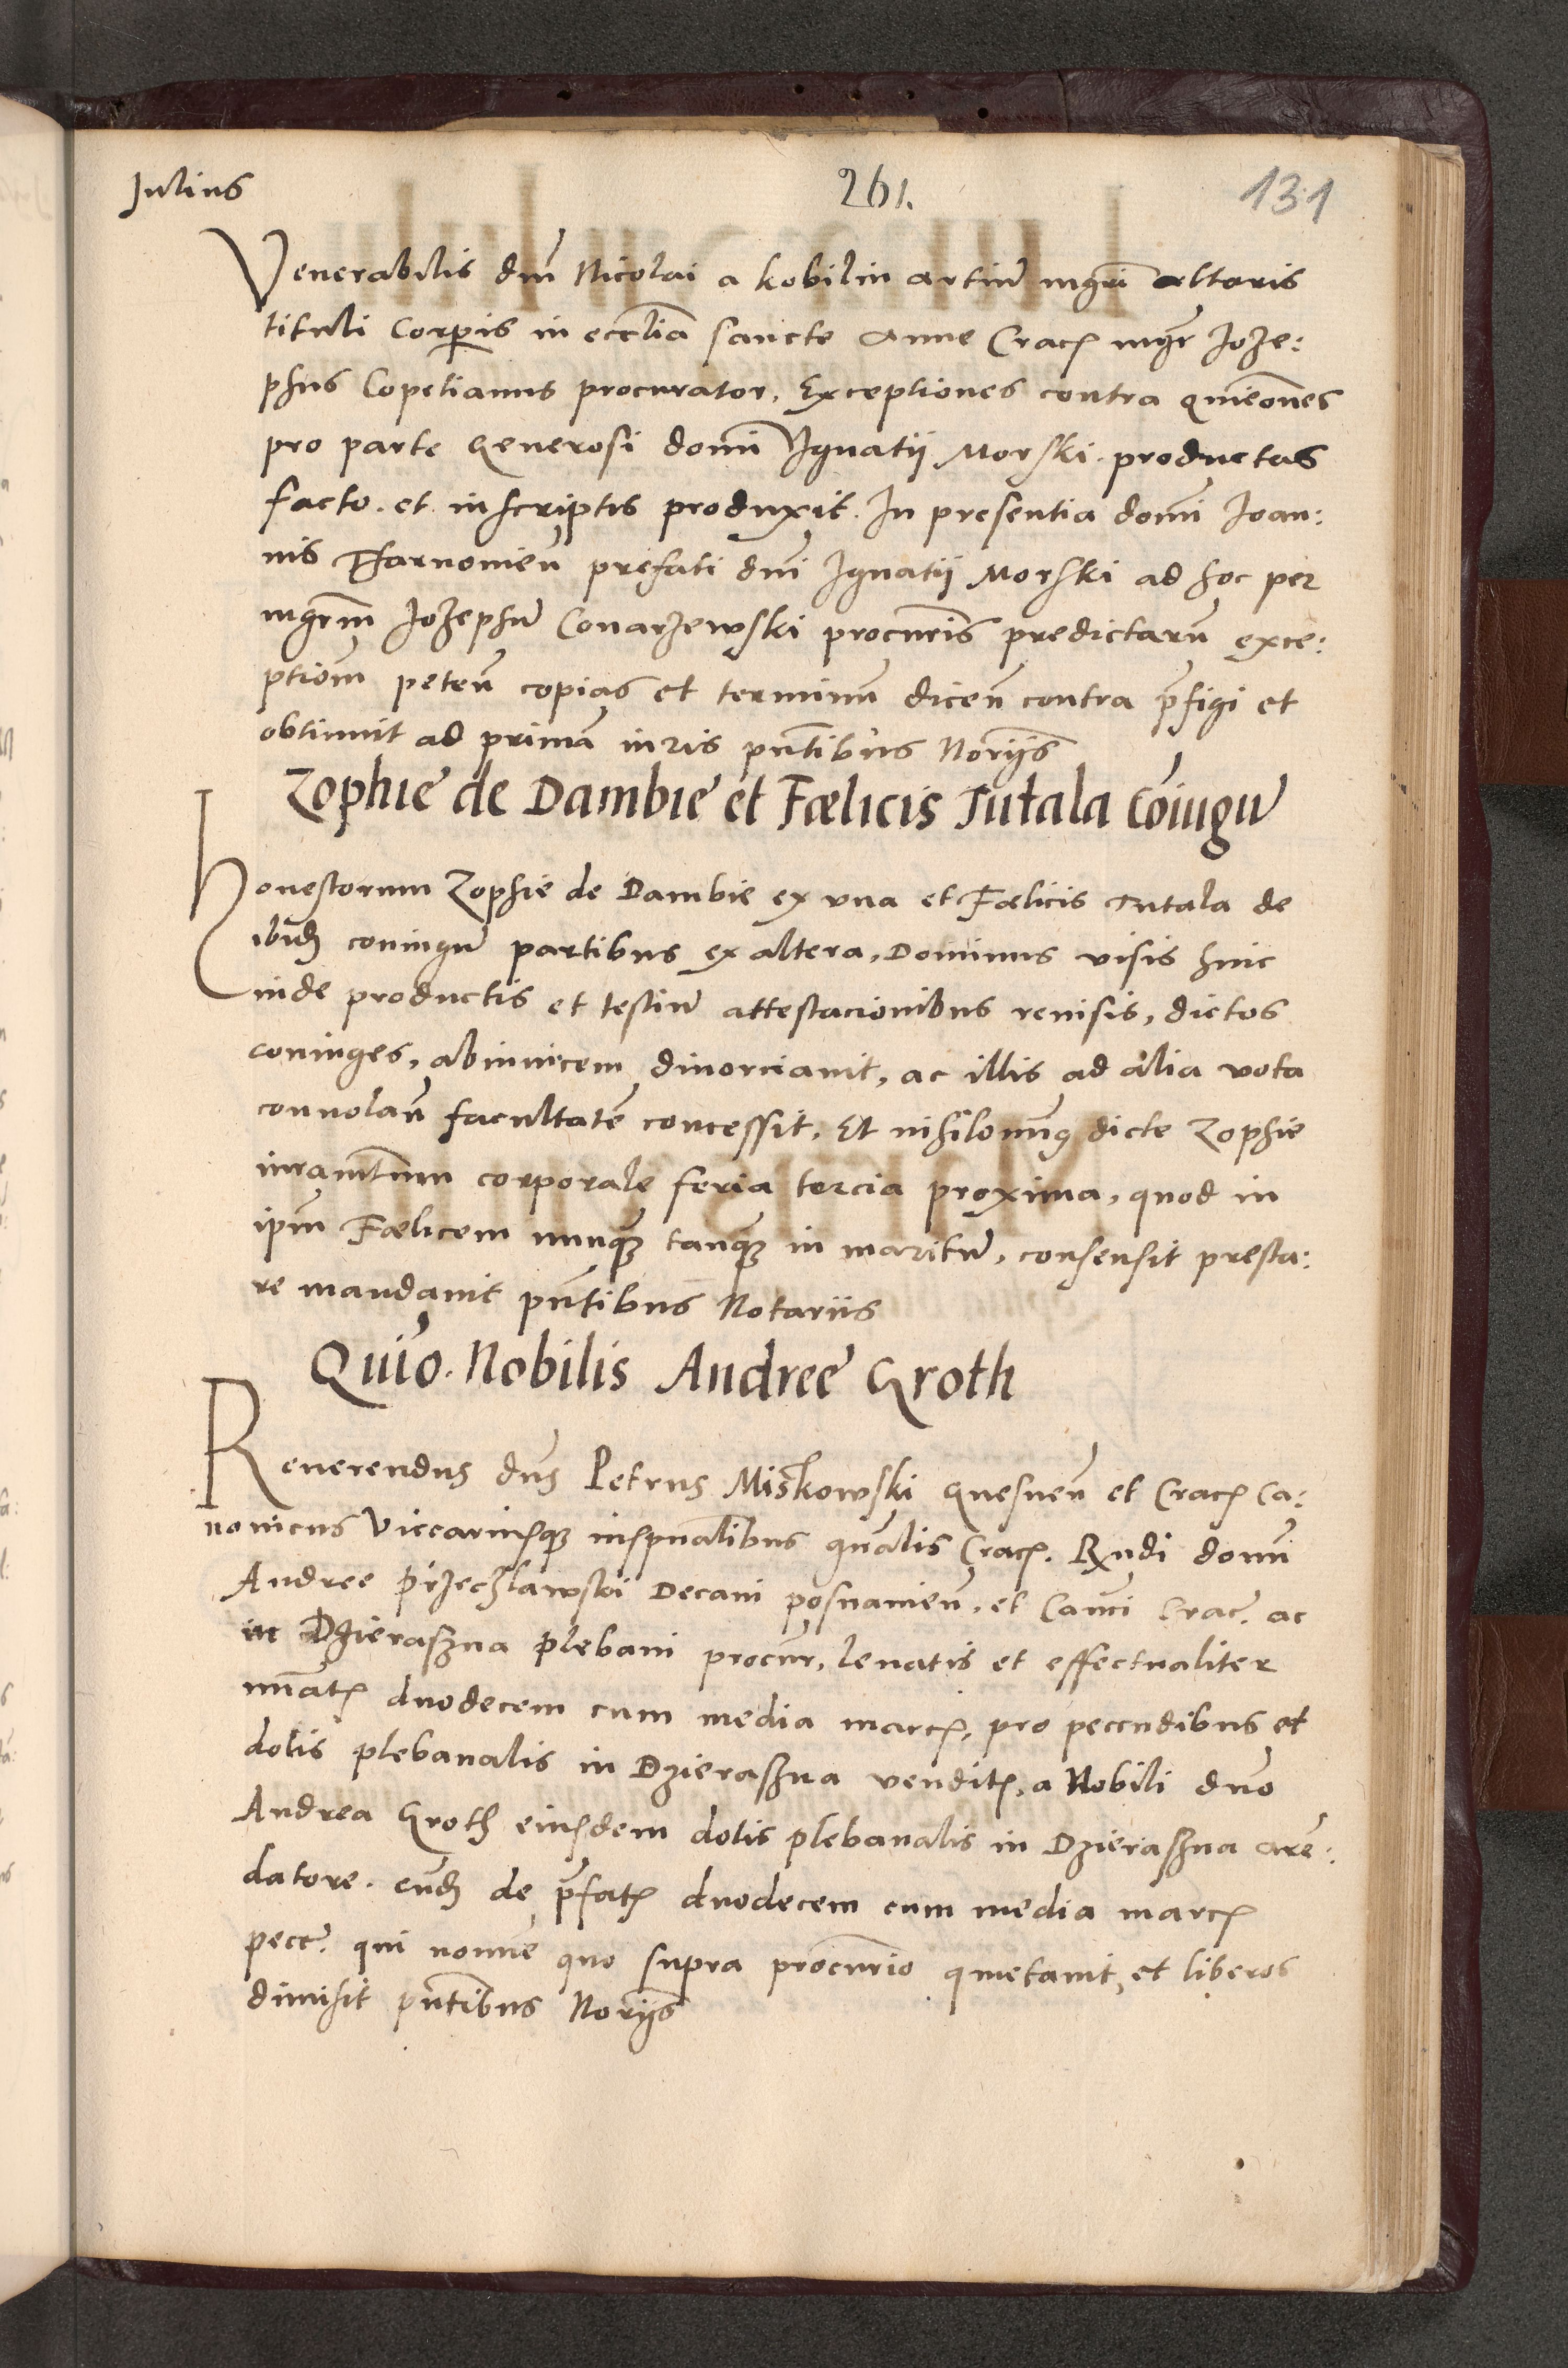 Julius
261.
131
Venerabilis dni Nicolai a Kobilin artiu mgri altaris
tituli Corpis in ecclia sancte Anne Crac mgr Joze:
phus Copetianus procurator, Exceptiones contra
pro parte Generosi domi Ignatii Morski productas
facto. et in scriptis produxit. In presentia domi Joan:
nis prefati dni Ignatii Morski ad hoc per
mgrm Jozephu Conarzewski procuris predictaru exce:
ptiom peten copias et terminu dicen contra pfigi et
obtinuit ad prima iuris pntibus Noriis
Zophie de Dambie et Fœlicis Tutala Coiugu
Honestorum Zophie de Dambie ex vna et Fœlicis Tutala de
ibide coniugu partibus ex altera, Dominus visis hinc
inde productis et testiu attestacionibus reuisis, dictos
coniuges, abinuicem diuorciauit, ac illis ad alia vota
conuolan facultate concessit, Et nihilominus dicte Zophie
iuramtum corporale feria tercia proxima, quod in
ipm Fœlicem nunq tanq in maritu, consensit presta:
re mandauit pntibus Notariis
Quio. Nobilis Andree Groth
Reuerendus dns Petrus Miskowski Gnesnen et Crac Ca:
nonicus Viccariusq inspualibus gnalis Crac. Rndi domi
Andree Przeczlawski Decani posnanien. et Canci Crac. ac
in Dzieraszna plebani procur, leuatis et effectualiter
nuat duodecem cum media marc, pro peccudibus et
dotis plebanalis in Dzieraszna vendit, a Nobili dno
Andrea Groth eiusdem dotis plebanalis in Dzieraszna are:
datore. eund de pfat duodecem cum media marc
pecc. qui nomine quo supra procurio quietauit, et liberos
dimisit pntibus Noriis